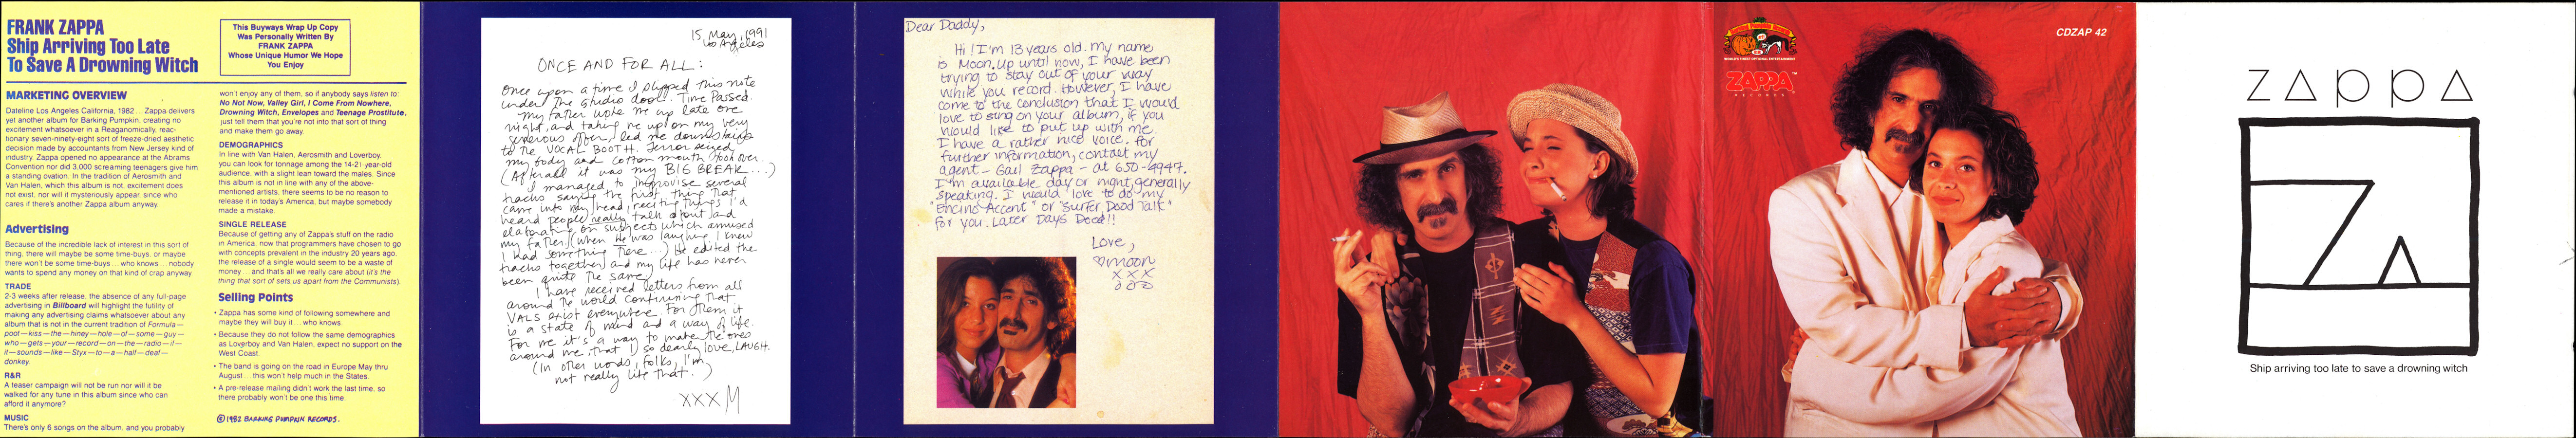 FRANK ZAPPA
Ship Arriving Too Late
To Save A Drowning Witch
This Buyways Wrap Up Copy
Was Personally Written By
FRANK ZAPPA
Whose Unique Humor We Hope
You Enjoy
MARKETING OVERVIEW
Dateline Los Angeles California, 1982 ... Zappa delivers
yet another album for Barking Pumpkin, creating no
excitement whatsoever in a Reaganomically, reac-
tionary seven-ninety-eight sort of freeze-dried aesthetic
decision made by accountants from New Jersey kind of
industry. Zappa opened no appearance at the Abrams
Convention nor did 3,000 screaming teenagers give him
a standing ovation. In the tradition of Aerosmith and
Van Halen, which this album is not, excitement does
not exist, nor will it mysteriously appear, since who
cares if there's another Zappa album anyway.
Advertising
Because of the incredible lack of interest in this sort of
thing, there will maybe be some time-buys, or maybe
there won't be some time-buys ... who knows ... nobody
wants to spend any money on that kind of crap anyway
TRADE
2-3 weeks after release, the absence of any full-page
advertising in Billboard will highlight the futility of
making any advertising claims whatsoever about any
album that is not in the current tradition of Formula—
poot—kiss—the—hiney—hole—of—some—guy—
who—gets—your—record—on—the—radio—if—
it—sounds—like—Styx—to—a—half—deaf—
donkey.
R&R
A teaser campaign will not be run nor will it be
walked for any tune in this album since who can
afford it anymore?
MUSIC
There's only 6 songs on the album, and you probably
won't enjoy any of them, so if anybody says listen to:
No Not Now, Valley Girl, I Come From Nowhere,
Drowning Witch, Envelopes and Teenage Prostitute,
just tell them that you're not into that sort of thing
and make them go away.
DEMOGRAPHICS
In line with Van Halen, Aerosmith and Loverboy,
you can look for tonnage among the 14-21-year-old
audience, with a slight lean toward the males. Since
this album is not in line with any of the above-
mentioned artists, there seems to be no reason to
release it in today's America, but maybe somebody
made a mistake.
SINGLE RELEASE
Because of getting any of Zappa's stuff on the radio
in America, now that programmers have chosen to go
with concepts prevalent in the industry 20 years ago,
the release of a single would seem to be a waste of
money ... and that's all we really care about (it's the
thing that sort of sets us apart from the Communists).
Selling Points
• Zappa has some kind of following somewhere and
maybe they will buy it ... who knows.
• Because they do not follow the same demographics
as Loverboy and Van Halen, expect no support on the
West Coast.
• The band is going on the road in Europe May thru
August ... this won't help much in the States.
• A pre-release mailing didn't work the last time, so
there probably won't be one this time.
©1982 BARKING PUMPKIN RECORDS.
15 May, 1991
Los Angeles
ONCE AND FOR ALL:
Once upon a time I slipped this note
under the studio door. Time Passed.
My father woke me up late one
night, and taking me up on my very
generous offer, led me downstairs
to the VOCAL BOOTH. Terror seized
my body and cotton mouth took over.
(After all it was my BIG BREAK...)
I managed to improvise several
tracks saying the first thing that
came into my head, reciting things I'd
heard people really talk about and
elaborating on subjects which amused
my father. (When He was laughing I knew
I had something there...) He edited the
tracks together and my life has never
been quite the same.
I have received letters from all
around the world confirming that
VALS exist everywhere. For them it
is a state of mind and a way of life.
For me it's a way to make the ones
around me, that I so dearly love, LAUGH.
(In other words, folks, I'm
not really like that.)
XXX M
Dear Daddy,
Hi! I'm 13 years old. My name
is Moon. Up until now, I have been
trying to stay out of your way
while you record. However, I have
come to the conclusion that I would
love to sing on your album, if you
would like to put up with me.
I have a rather nice voice. For
further information, contact my
agent - Gail Zappa - at 650-4947.
I'm available day or night, generally
speaking. I would love to do my
"Encino Accent" or "Surfer Dood Talk"
for you. Later Days Dood!!
Love,
♡moon
XXX
OOO
WORLD'S FINEST OPTIONAL ENTERTAINMENT
ZAPPA™
RECORDS
CDZAP 42
ZAPPA
ZA
Ship arriving too late to save a drowning witch